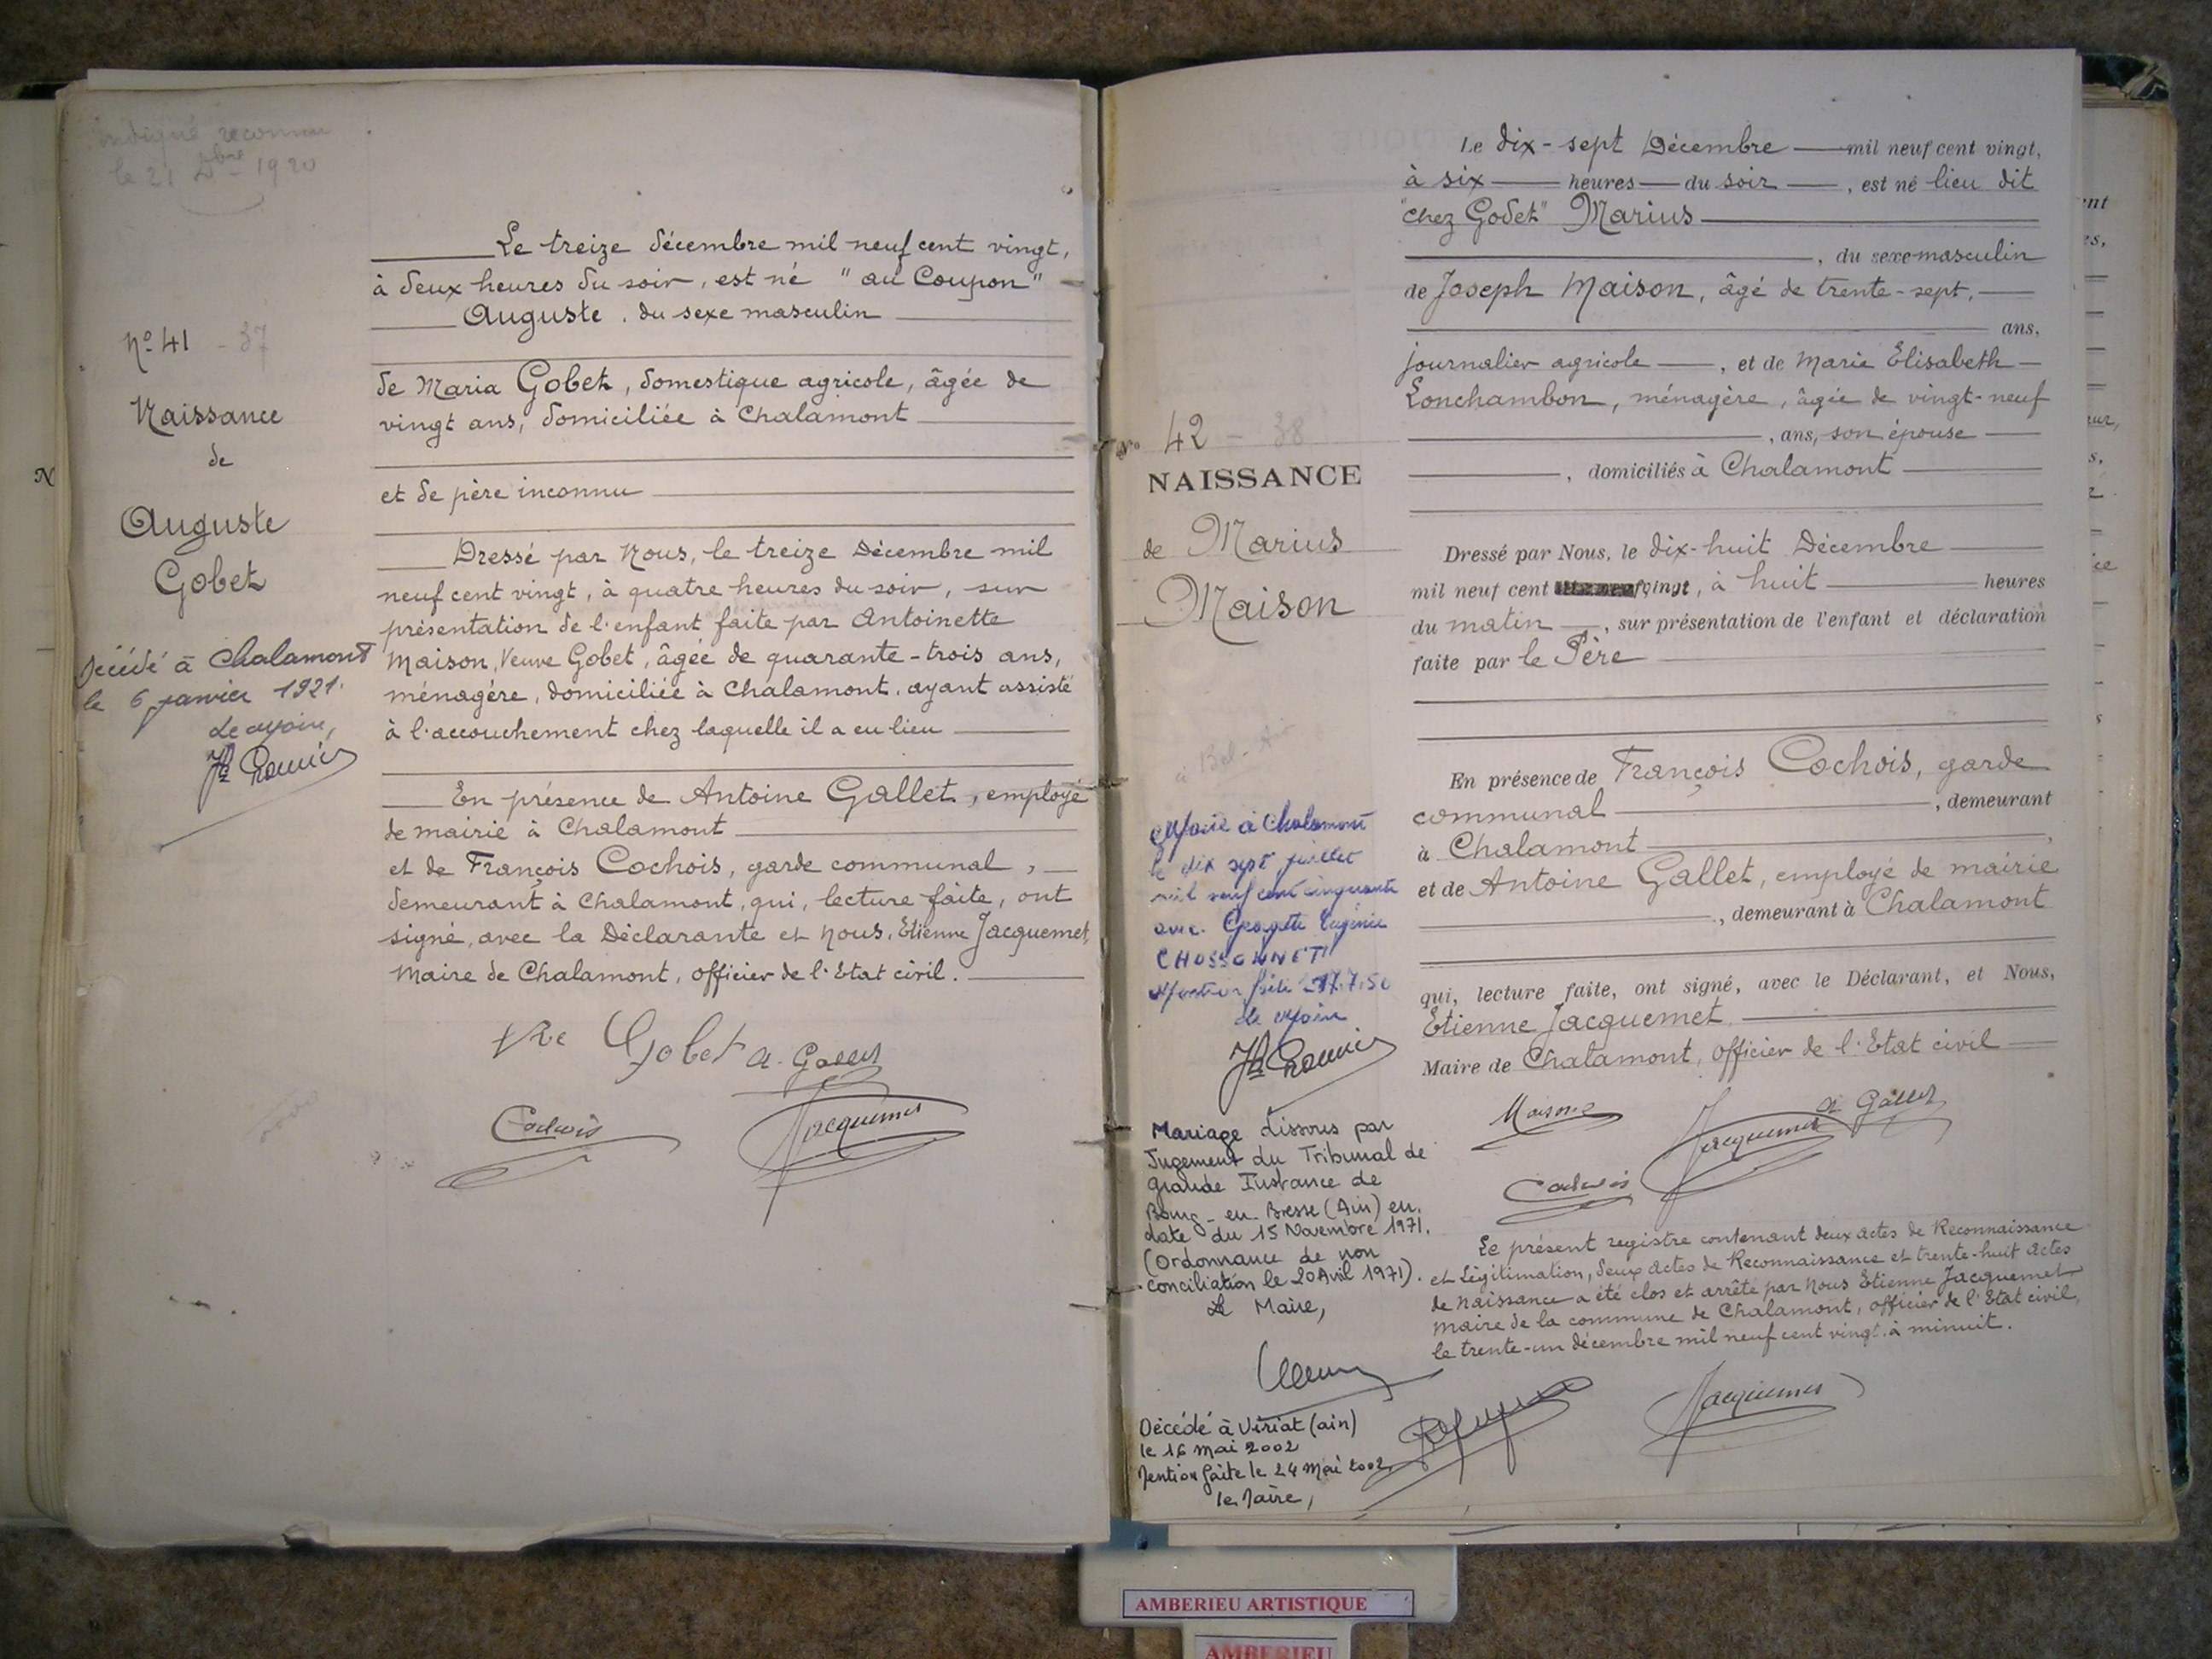 reconnu
le 21 Dbre 1920
No 41 - 37
Naissance
de
Auguste
Gobet
Décédé à Chalamont
le 6 janvier 1921.
Le Maire,
Le treize décembre mil neuf cent vingt,
à deux heures du soir, est né "au Coupon"
Auguste, du sexe masculin
de Maria Gobet, domestique agricole, âgée de
vingt ans, domiciliée à Chalamont
et de père inconnu
Dressé par Nous, le treize Décembre mil
neuf cent vingt, à quatre heures du soir, sur
présentation de l'enfant faite par Antoinette
Maison, Veuve Gobet, âgée de quarante-trois ans,
ménagère, domiciliée à Chalamont, ayant assisté
à l'accouchement chez laquelle il a eu lieu
En présence de Antoine Gallet, employé
de mairie à Chalamont
et de François Cochois, garde communal,
demeurant à Chalamont, qui, lecture faite, ont
signé, avec la Déclarante et Nous, Etienne Jacquemet,
Maire de Chalamont, officier de l'Etat civil.
Vve Gobet A. Gallet
Cochois Jacquemet
N
No 42 - 38
NAISSANCE
de Marius
Maison
à Bel-Air
Marié à Chalamont
le dix sept juillet
mil neuf cent cinquante
avec Georgette Eugénie
CHOSSONNET
Mention faite 17.7.50
Le Maire
Mariage dissous par
Jugement du Tribunal de
Grande Instance de
Bourg-en-Bresse (Ain) en
date du 15 Novembre 1971.
(Ordonnance de non
conciliation le 20 Avril 1971).
Le Maire,
Décédé à Viriat (ain)
le 16 mai 2002
Mention faite le 24 mai 2002
le Maire,
Le dix-sept Décembre mil neuf cent vingt,
à six heures du soir, est né lieu dit
"chez Godet" Marius
, du sexe masculin
de Joseph Maison, âgé de trente-sept,
ans,
journalier agricole, et de Marie Elisabeth
Lonchambon, ménagère, âgée de vingt-neuf
, ans, son épouse
, domiciliés à Chalamont
Dressé par Nous, le dix-huit Décembre
mil neuf cent vingt, à huit heures
du matin, sur présentation de l'enfant et déclaration
faite par le Père
En présence de François Cochois, garde
communal, demeurant
à Chalamont
et de Antoine Gallet, employé de mairie
, demeurant à Chalamont
qui, lecture faite, ont signé, avec le Déclarant, et Nous,
Etienne Jacquemet
Maire de Chalamont, officier de l'Etat civil
Maison A. Gallet
Jacquemet
Cochois
Le présent registre contenant deux actes de Reconnaissance
et Légitimation, deux actes de Reconnaissance et trente-huit actes
de naissance a été clos et arrêté par Nous Etienne Jacquemet
Maire de la commune de Chalamont, officier de l'Etat civil,
le trente-un décembre mil neuf cent vingt, à minuit.
Jacquemet
AMBERIEU ARTISTIQUE
AMBERIEU